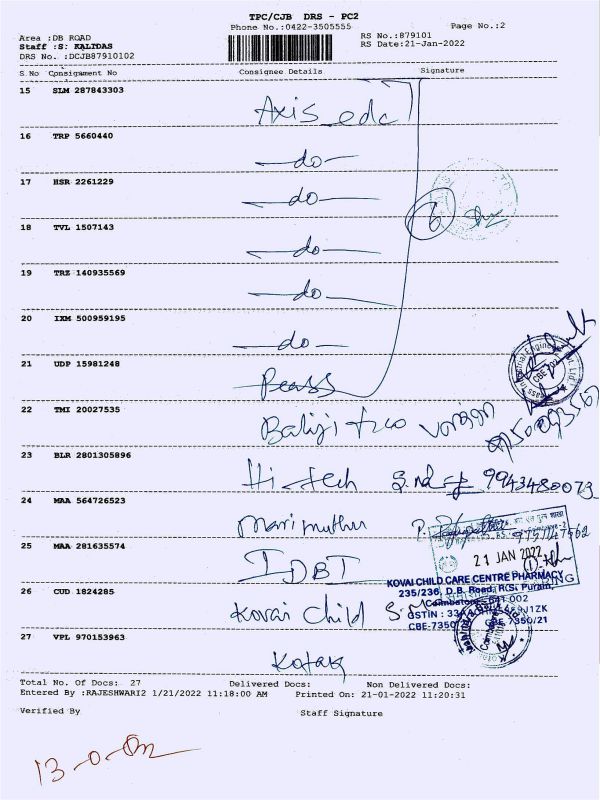 TPC/CJB DRS - PC2
Phone No.:0422-3505555
Page No.:2
Area :DB ROAD
RS No.:879101
Staff :S. KALIDAS
RS Date:21-Jan-2022
DRS No. :DCJB87910102
S.No Consignment No Consignee Details Signature
15 SLM 287843303
Axis edc
16 TRP 5660440
-do-
17 HSR 2261229
-do-
6
18 TVL 1507143
-do-
19 TRZ 140935569
-do-
20 IXM 500959195
-do-
21 UDP 15981248
Peass
CBE
22 TMI 20027535
Baliji
23 BLR 2801305896
Hi-tech 9943480073
24 MAA 564726523
Marimuthu P.
25 MAA 281635574
IDBT
21 JAN 2022
KOVAI CHILD CARE CENTRE PHARMACY
235/236, D.B. Road, R.S. Puram,
Coimbatore - 641 002
GSTIN : 33
CBE-7350 CBE 7350/21
26 CUD 1824285
Kovai Child S.M
27 VPL 970153963
Kotak
Total No. Of Docs: 27 Delivered Docs: Non Delivered Docs:
Entered By :RAJESHWARI2 1/21/2022 11:18:00 AM Printed On: 21-01-2022 11:20:31
Verified By Staff Signature